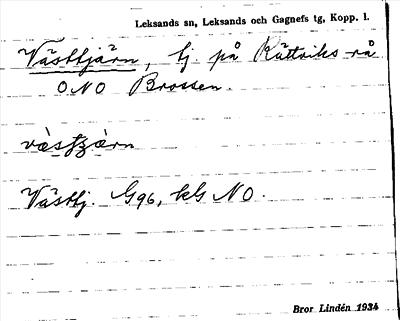 Leksands sn, Leksands och Gagnefs tg, Kopp. l.
Västtjärn, tj. på Rättviks rå
ONO Brossen.
Västtj. G96, kls NO.
Bror Lindén 1934